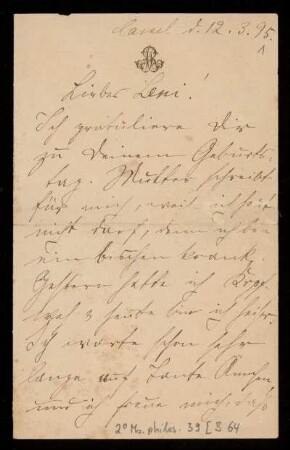 Cassel d. 12. 3. 95.
Liebes Leni!
Ich gratuliere Dir
zu Deinem Geburts-
tag. Mutter schreibt
für mich, weil ich heut
nicht darf, denn ich bin
ein bischen krank.
Gestern hatte ich Kopf-
weh u heute bin ich heiser.
Ich warte schon sehr
lange auf Tante Annchen
und ich freue mich, daß
2° Ms. philos. 39 [S 64